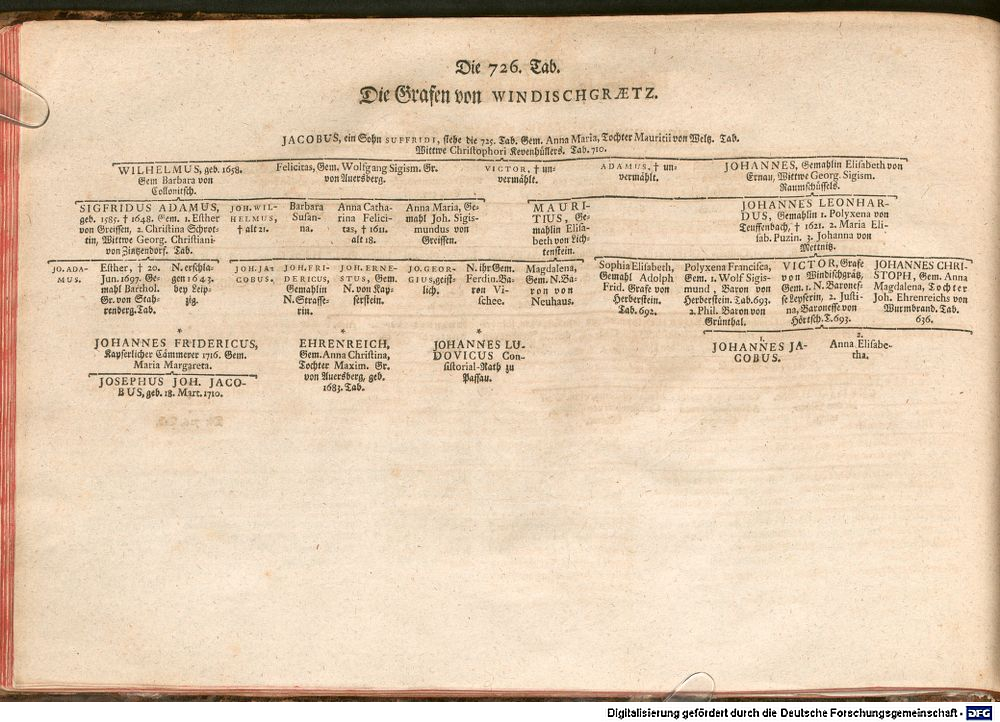 Die 726. Tab.
Die Grafen von WINDISCHGRÆTZ.
JACOBUS, ein Sohn SUFFRIDI, siehe die 725. Tab. Gem. Anna Maria, Tochter Mauritii von Weltz. Tab.
Wittwe Christophori Kevenhüllers. Tab. 710.
WILHELMUS, geb. 1658.
Gem Barbara von
Collonitsch.
Felicitas, Gem. Wolfgang Sigism. Gr.
von Auersberg.
VICTOR, † un-
vermählt.
ADAMUS, † un-
vermählt.
JOHANNES, Gemahlin Elisabeth von
Ernau, Wittwe Georg. Sigism.
Raumschüssels.
SIGFRIDUS ADAMUS,
geb. 1585. † 1648. Gem. 1. Esther
von Greissen, 2. Christina Schrot-
tin, Wittwe Georg. Christiani
von Zintzendorf. Tab.
JOH. WIL-
HELMUS,
† alt 21.
Barbara
Susan-
na.
Anna Catha-
rina Felici-
tas, † 1611.
alt 18.
Anna Maria, Ge-
mahl Joh. Sigis-
mundus von
Greissen.
MAURI-
TIUS, Ge-
mahlin Elisa-
beth von Lich-
tenstein.
JOHANNES LEONHAR-
DUS, Gemahlin 1. Polyxena von
Teuffenbach, † 1621. 2. Maria Eli-
sab. Puzin. 3. Johanna von
Mettnitz.
JO. ADA-
MUS.
Esther, † 20.
Jun. 1697. Ge-
mahl Barthol.
Gr. von Stah-
renberg. Tab.
N. erschla-
gen 1643.
bey Leip-
zig.
JOH. JA-
COBUS.
JOH. FRI-
DERICUS,
Gemahlin
N. Strasse-
rin.
JOH. ERNE-
STUS, Gem.
N. von Kay-
serstein.
JO. GEOR-
GIUS, geist-
lich.
N. ihr Gem.
Ferdin. Ba-
ron Vi-
schee.
Magdalena,
Gem. N. Ba-
ron von
Neuhaus.
Sophia Elisabeth,
Gemahl Adolph
Frid. Grafe von
Herberstein.
Tab. 692.
Polyxena Francisca,
Gem. 1. Wolf Sigis-
mund, Baron von
Herberstein. Tab. 693.
2. Phil. Baron von
Grünthal.
VICTOR, Grafe
von Windischgrätz,
Gem. 1. N. Barones-
se Leyserin, 2. Justi-
na, Baronesse von
Hörtsch. T. 693.
JOHANNES CHRI-
STOPH, Gem. Anna
Magdalena, Tochter
Joh. Ehrenreichs von
Wurmbrand. Tab.
636.
*
JOHANNES FRIDERICUS,
Kayserlicher Cämmerer 1716. Gem.
Maria Margareta.
*
EHRENREICH,
Gem. Anna Christina,
Tochter Maxim. Gr.
von Auersberg, geb.
1683. Tab.
*
JOHANNES LU-
DOVICUS Con-
sistorial-Rath zu
Passau.
1.
JOHANNES JA-
COBUS.
2.
Anna Elisabe-
tha.
JOSEPHUS JOH. JACO-
BUS, geb. 18. Mart. 1710.
Digitalisierung gefördert durch die Deutsche Forschungsgemeinschaft - DFG